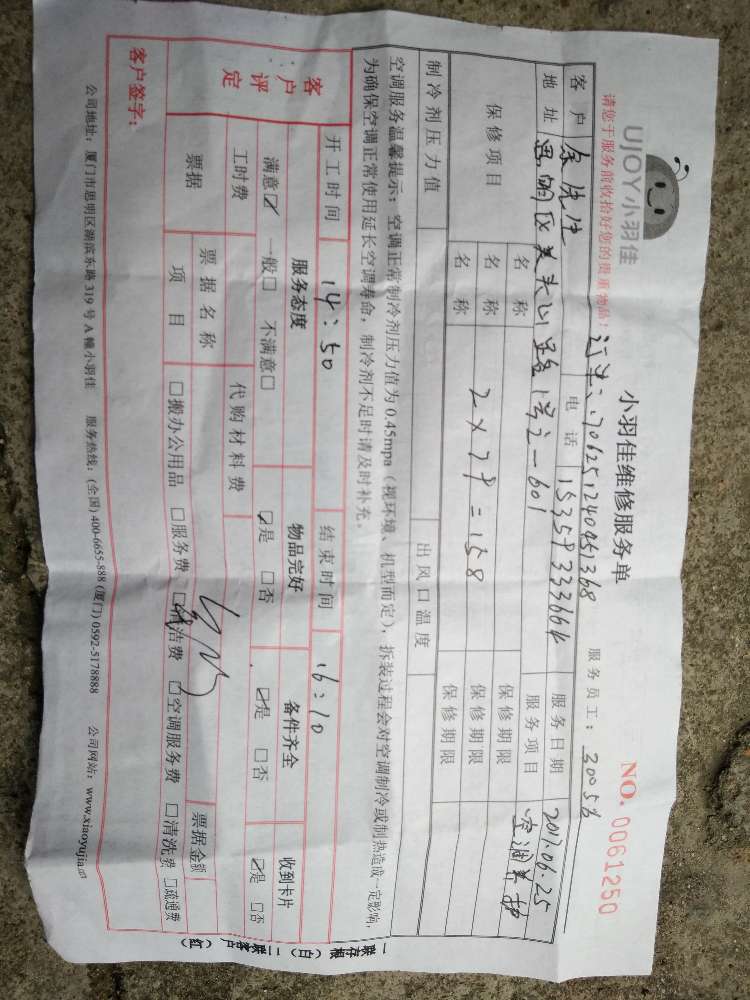 UJOY小羽佳
小羽佳维修服务单
NO. 0061250
请您于服务前收拾好您的贵重物品!
服务员工:
客户 余先生 电话 15359333664 服务日期 2017.06.25
地址 服务项目 空调养护
保修项目 名称 保修期限
名称 2×79=158 保修期限
名称 保修期限
制冷剂压力值 出风口温度
空调服务温馨提示:空调正常制冷剂压力值为0.45mpa(视环境、机型而定),拆装过程会对空调制冷或制热造成一定影响,
为确保空调正常使用延长空调寿命,制冷剂不足时请及时补充。
开工时间 14:50 结束时间 16:10
客户评定 服务态度 物品完好 备件齐全 收到卡片
满意☑ 一般□ 不满意□ ☑是 □否 ☑是 □否 ☑是 □否
工时费 代购材料费
票据 票据名称 票据金额
项目 □搬办公用品 □服务费 □清洁费 ☑空调服务费 □清洗费 □疏通费
客户签字:
公司地址:厦门市思明区湖滨东路319号A幢小羽佳 服务热线:(全国)400-6655-888 (厦门)0592-5178888 公司网站:www.xiaoyujia.
一联存根(白) 二联客户(红)